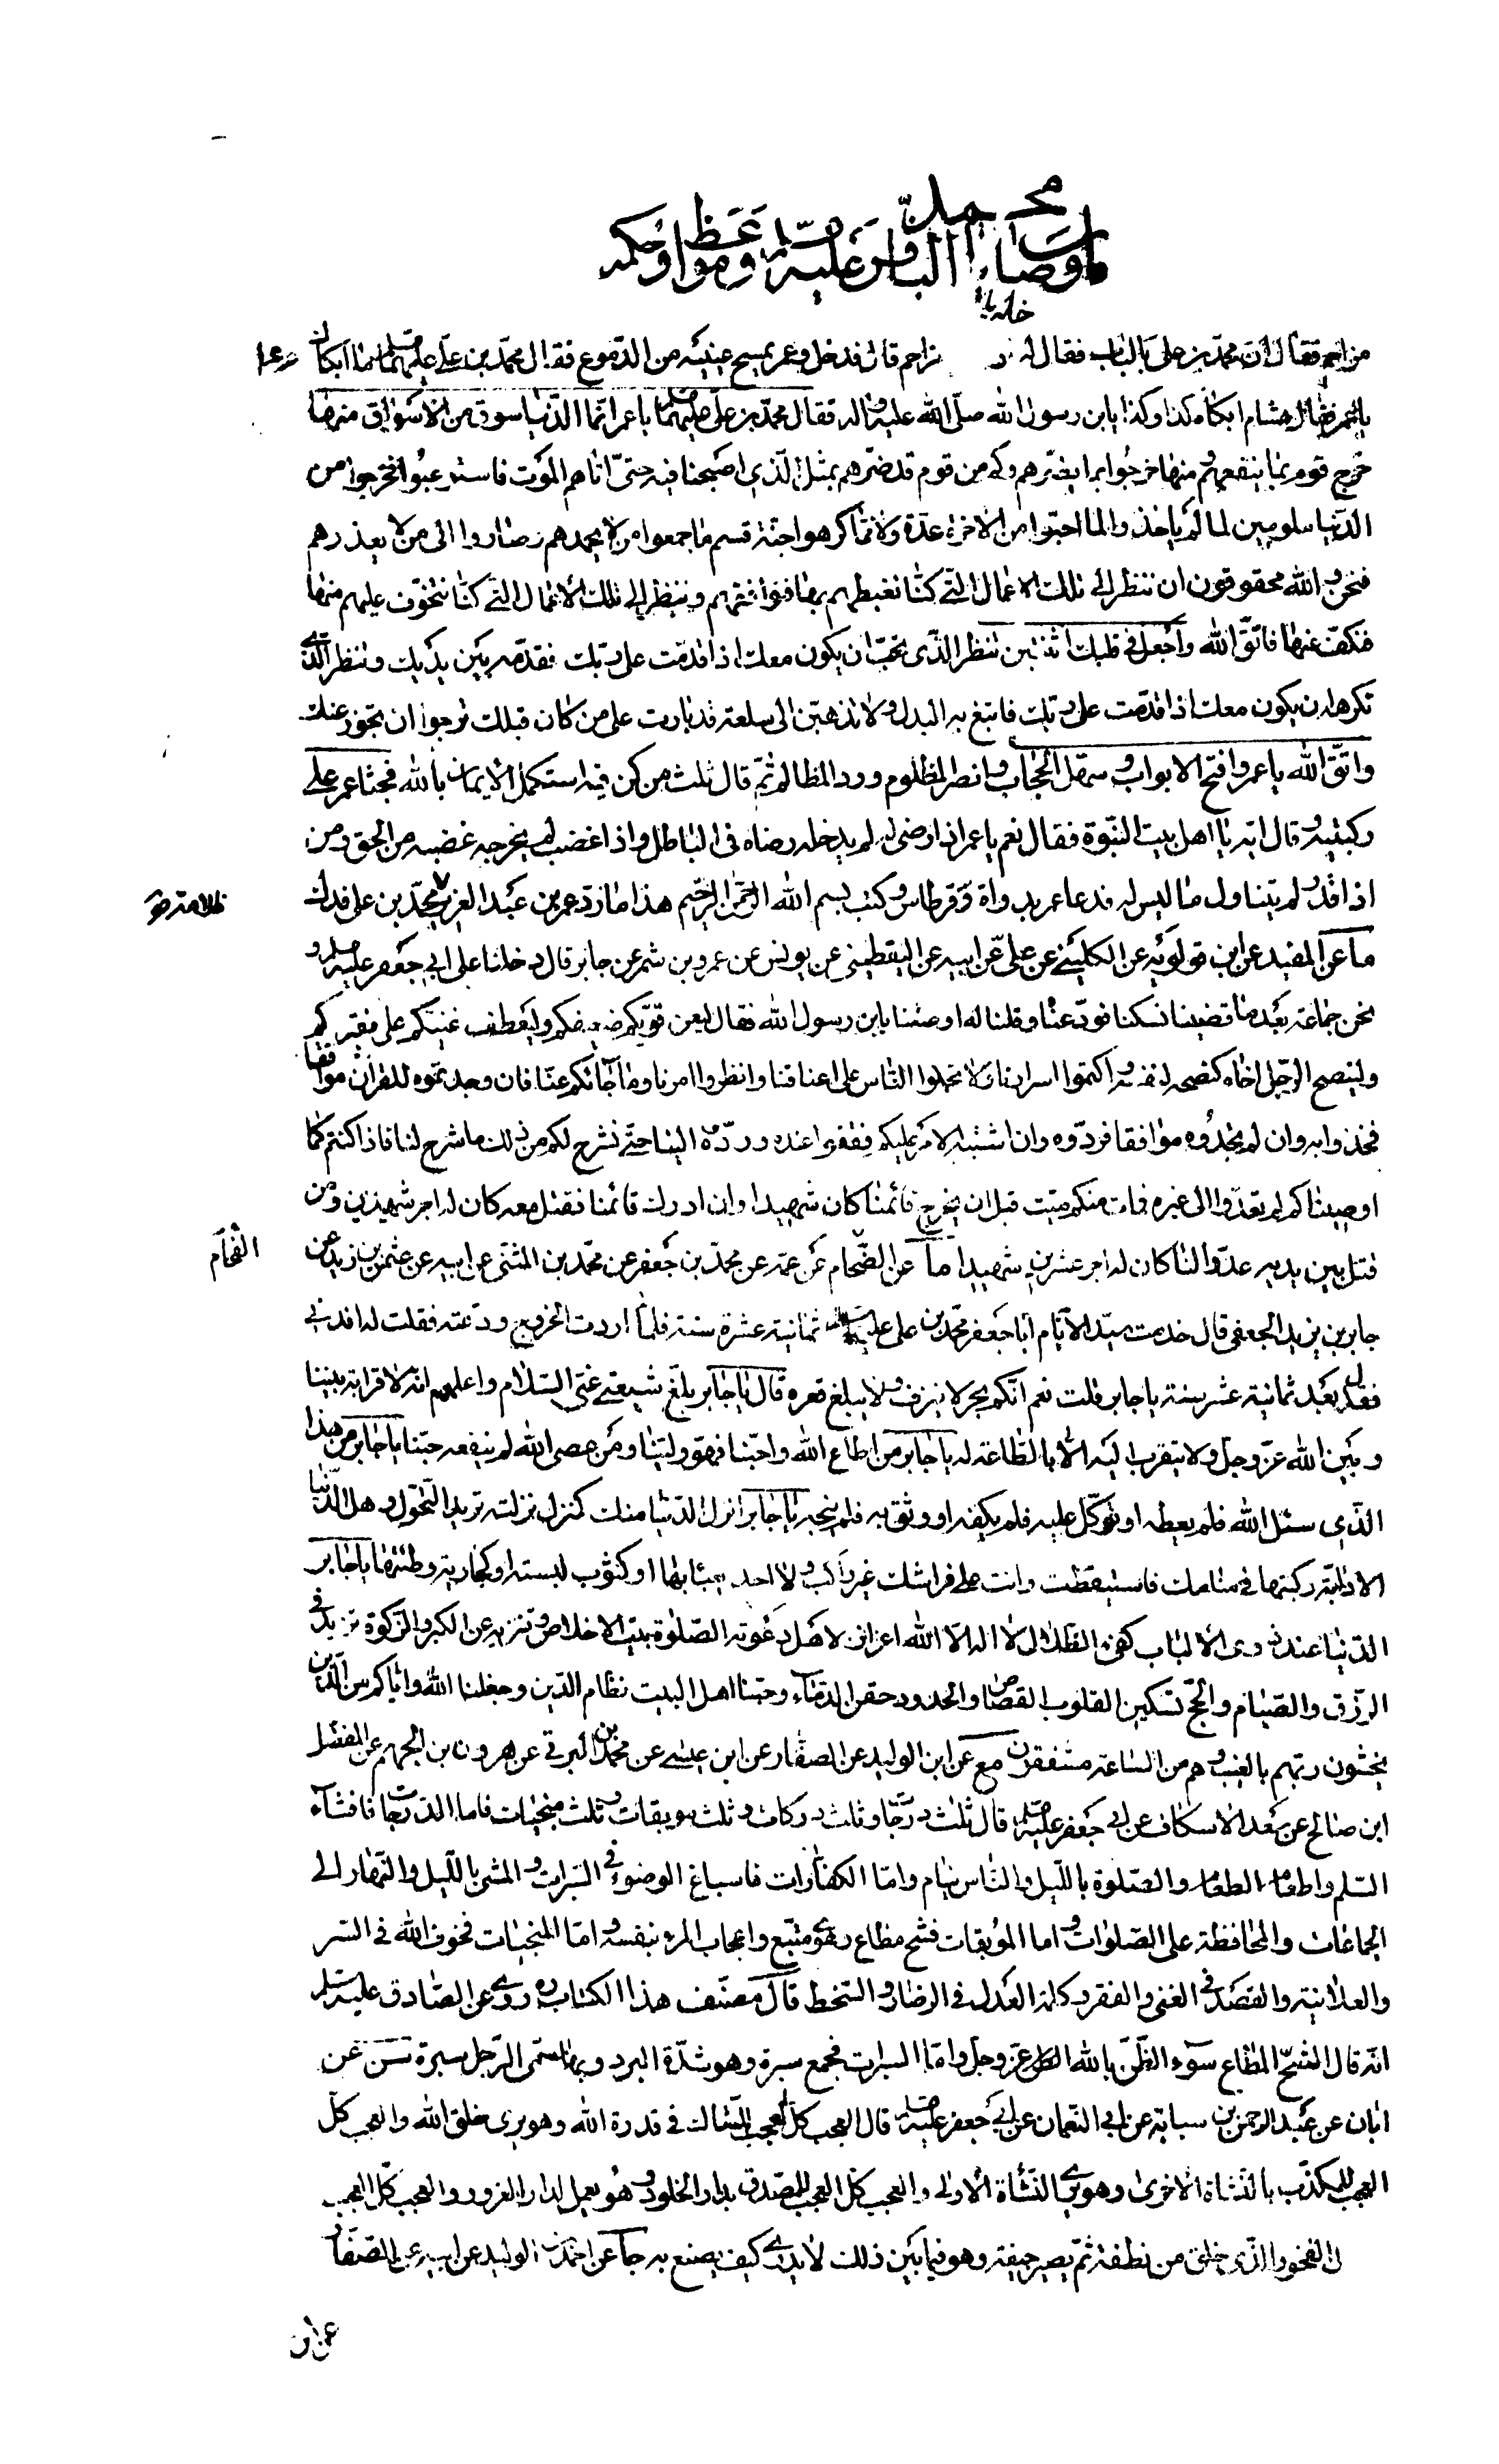 ما اوصاء محمد الباقر عليه السلم ومواعظ وحكمه
مزاحم فقال ان محمد بن على بالباب فقال له مزاحم قال فدخل وعمر يمسح عينيه من الدموع فقال محمد بن علي عليهما السلم ما ابكاك
يا عمر فقال هشام ابكاه كذا وكذا يابن رسول الله صلى الله عليه واله فقال محمد بن علي عليهما السلم يا عمر انما الدنيا سوق من الاسواق منها
خرج قوم بما ينفعهم ومنها خرجوا بما يضرهم وكم من قوم قد ضرهم بمثل الذي اصبحنا فيه حتى اتاهم الموت فاستوعبوا فخرجوا من
الدنيا ملومين لما لم ياخذوا لما احبوا من الاخرة عدة ولا مما كرهوا جنة قسم ما جمعوا من لا يحمدهم وصاروا الى من لا يعذرهم
فنحن والله محقوقون ان ننظر الى تلك الاعمال التي كنا نغبطهم بها فنوافقهم وننظر الى تلك الاعمال التي كنا نتخوف عليهم منها
فنكف عنها فاتق الله واجعل في قلبك اثنتين تنظر الذي تحب ان يكون معك اذا قدمت على ربك فقدمه بين يديك وتنظر الذي
تكرهه ان يكون معك اذا قدمت على ربك فابتغ به البدل ولا تذهبن الى سلعة قد بارت على من كان قبلك ترجوا ان تجوز عنك
واتق الله يا عمر وافتح الابواب وسهل الحجاب وانصر المظلوم ورد المظالم ثم قال ثلث من كن فيه استكمل الايمان بالله فجثا عمر على
ركبتيه وقال ايه يا اهل بيت النبوة فقال نعم يا عمر اذا رضى لم يدخله رضاه في الباطل واذا غضب لم يخرجه غضبه من الحق ومن
اذا قدر لم يتناول ما ليس له فدعا عمر بدواة وقرطاس وكتب بسم الله الرحمن الرحيم هذا ما رد عمر بن عبد العزيز محمد بن على فدك
ظلامة
ما عن المفيد عن ابن قولويه عن الكليني عن علي عن ابيه عن اليقطيني عن يونس عن عمرو بن شمر عن جابر قال دخلنا على ابي جعفر عليه السلم و
نحن جماعة بعد ما قضينا نسكنا فودعناه وقلنا له اوصنا يابن رسول الله فقال ليعن قويكم ضعيفكم وليعطف غنيكم على فقيركم
ولينصح الرجل اخاه كنصحه لنفسه واكتموا اسرارنا ولا تحملوا الناس على اعناقنا وانظروا امرنا وما جائكم عنا فان وجدتموه للقران موافقا
فخذوا به وان لم تجدوه موافقا فردوه وان اشتبه الامر عليكم فقفوا عنده وردوه الينا حتى نشرح لكم من ذلك ما شرح لنا فاذا كنتم كما
اوصيناكم لم تعدوا الى غيره فمات منكم ميت قبل ان يخرج قائمنا كان شهيدا وان ادرك قائمنا فقتل معه كان له اجر شهيدين ومن
قتل بين يديه عدوا لنا كان له اجر عشرين شهيدا ما عن الضحام عن عمه عن محمد بن جعفر عن محمد بن المثنى عن ابيه عن عثمن بن زيد عن
الفحام
جابر بن يزيد الجعفي قال خدمت سيد الانام ابا جعفر محمد بن على عليهما السلم ثمانية عشرة سنة فلما اردت الخروج ودعته فقلت له افدني
فقال بعد ثمانية عشر سنة يا جابر قلت نعم انكم بحر لا ينزف ولا يبلغ قعره قال يا جابر بلغ شيعتي عني السلام واعلمهم انه لا قرابة بيننا
وبين الله عز وجل ولا يتقرب اليه الا بالطاعة له يا جابر من اطاع الله واحبنا فهو ولينا ومن عصى الله لم ينفعه حبنا يا جابر من هذا
الذي سئل الله فلم يعطه او توكل عليه فلم يكفه او وثق به فلم ينجه يا جابر انزل الدنيا منك كمنزل نزلته تريد التحول وهل الدنيا
الا دابة ركبتها في منامك فاستيقظت وانت على فراشك غير راكب ولا احد يعبا بها او كثوب لبسته او كجارية وطئتها يا جابر
الدنيا عند ذوى الالباب كفئ الظلال لا اله الا الله اعزاز لاهل دعوته الصلوة بيت الاخلاص وتنزيه عن الكبر والزكوة تزيد في
الرزق والصيام والحج تسكين القلوب القصاص والحدود حقن الدماء وحبنا اهل البيت نظام الدين وجعلنا الله واياكم من الذين
يخشون ربهم بالغيب وهم من الساعة مشفقون مع عن ابن الوليد عن الصفار عن ابن عيسى عن محمد بن البرقي عن هرون بن الجهم عن المفضل
ابن صالح عن سعد الاسكاف عن ابي جعفر عليه السلم قال ثلث درجات وثلث دركات وثلث موبقات وثلث منجيات فاما الدرجات فافشاء
السلم واطعام الطعام والصلوة بالليل والناس نيام واما الكفارات فاسباغ الوضوء في السبرات والمشى بالليل والنهار الى
الجماعات والمحافظة على الصلوات واما الموبقات فشح مطاع وهوى متبع واعجاب المرء بنفسه واما المنجيات فخوف الله في السر
والعلانية والقصد في الغنى والفقر وكلمة العدل في الرضا والسخط قال مصنف هذا الكتاب ره روى عن الصادق عليه السلم
انه قال الشح المطاع سوء الظن بالله عز وجل واما السبرات فجمع سبرة وهو شدة البرد وبها سمى الرجل سبرة سن عن
ابان عن عبد الرحمن بن سيابة عن ابي النعمان عن ابي جعفر عليه السلم قال العجب كل العجب للشاك في قدرة الله وهو يرى خلق الله والعجب كل
العجب للمكذب بالنشاة الاخرى وهو يرى النشاة الاولى والعجب كل العجب للمصدق بدار الخلود وهو يعمل لدار الغرور والعجب كل العجب
للفخور الذي خلق من نطفة ثم يصير جيفة وهو فيما بين ذلك لا يدرى كيف يصنع به جا عن احمد بن الوليد عن ابيه عن الصفار
عن ابن